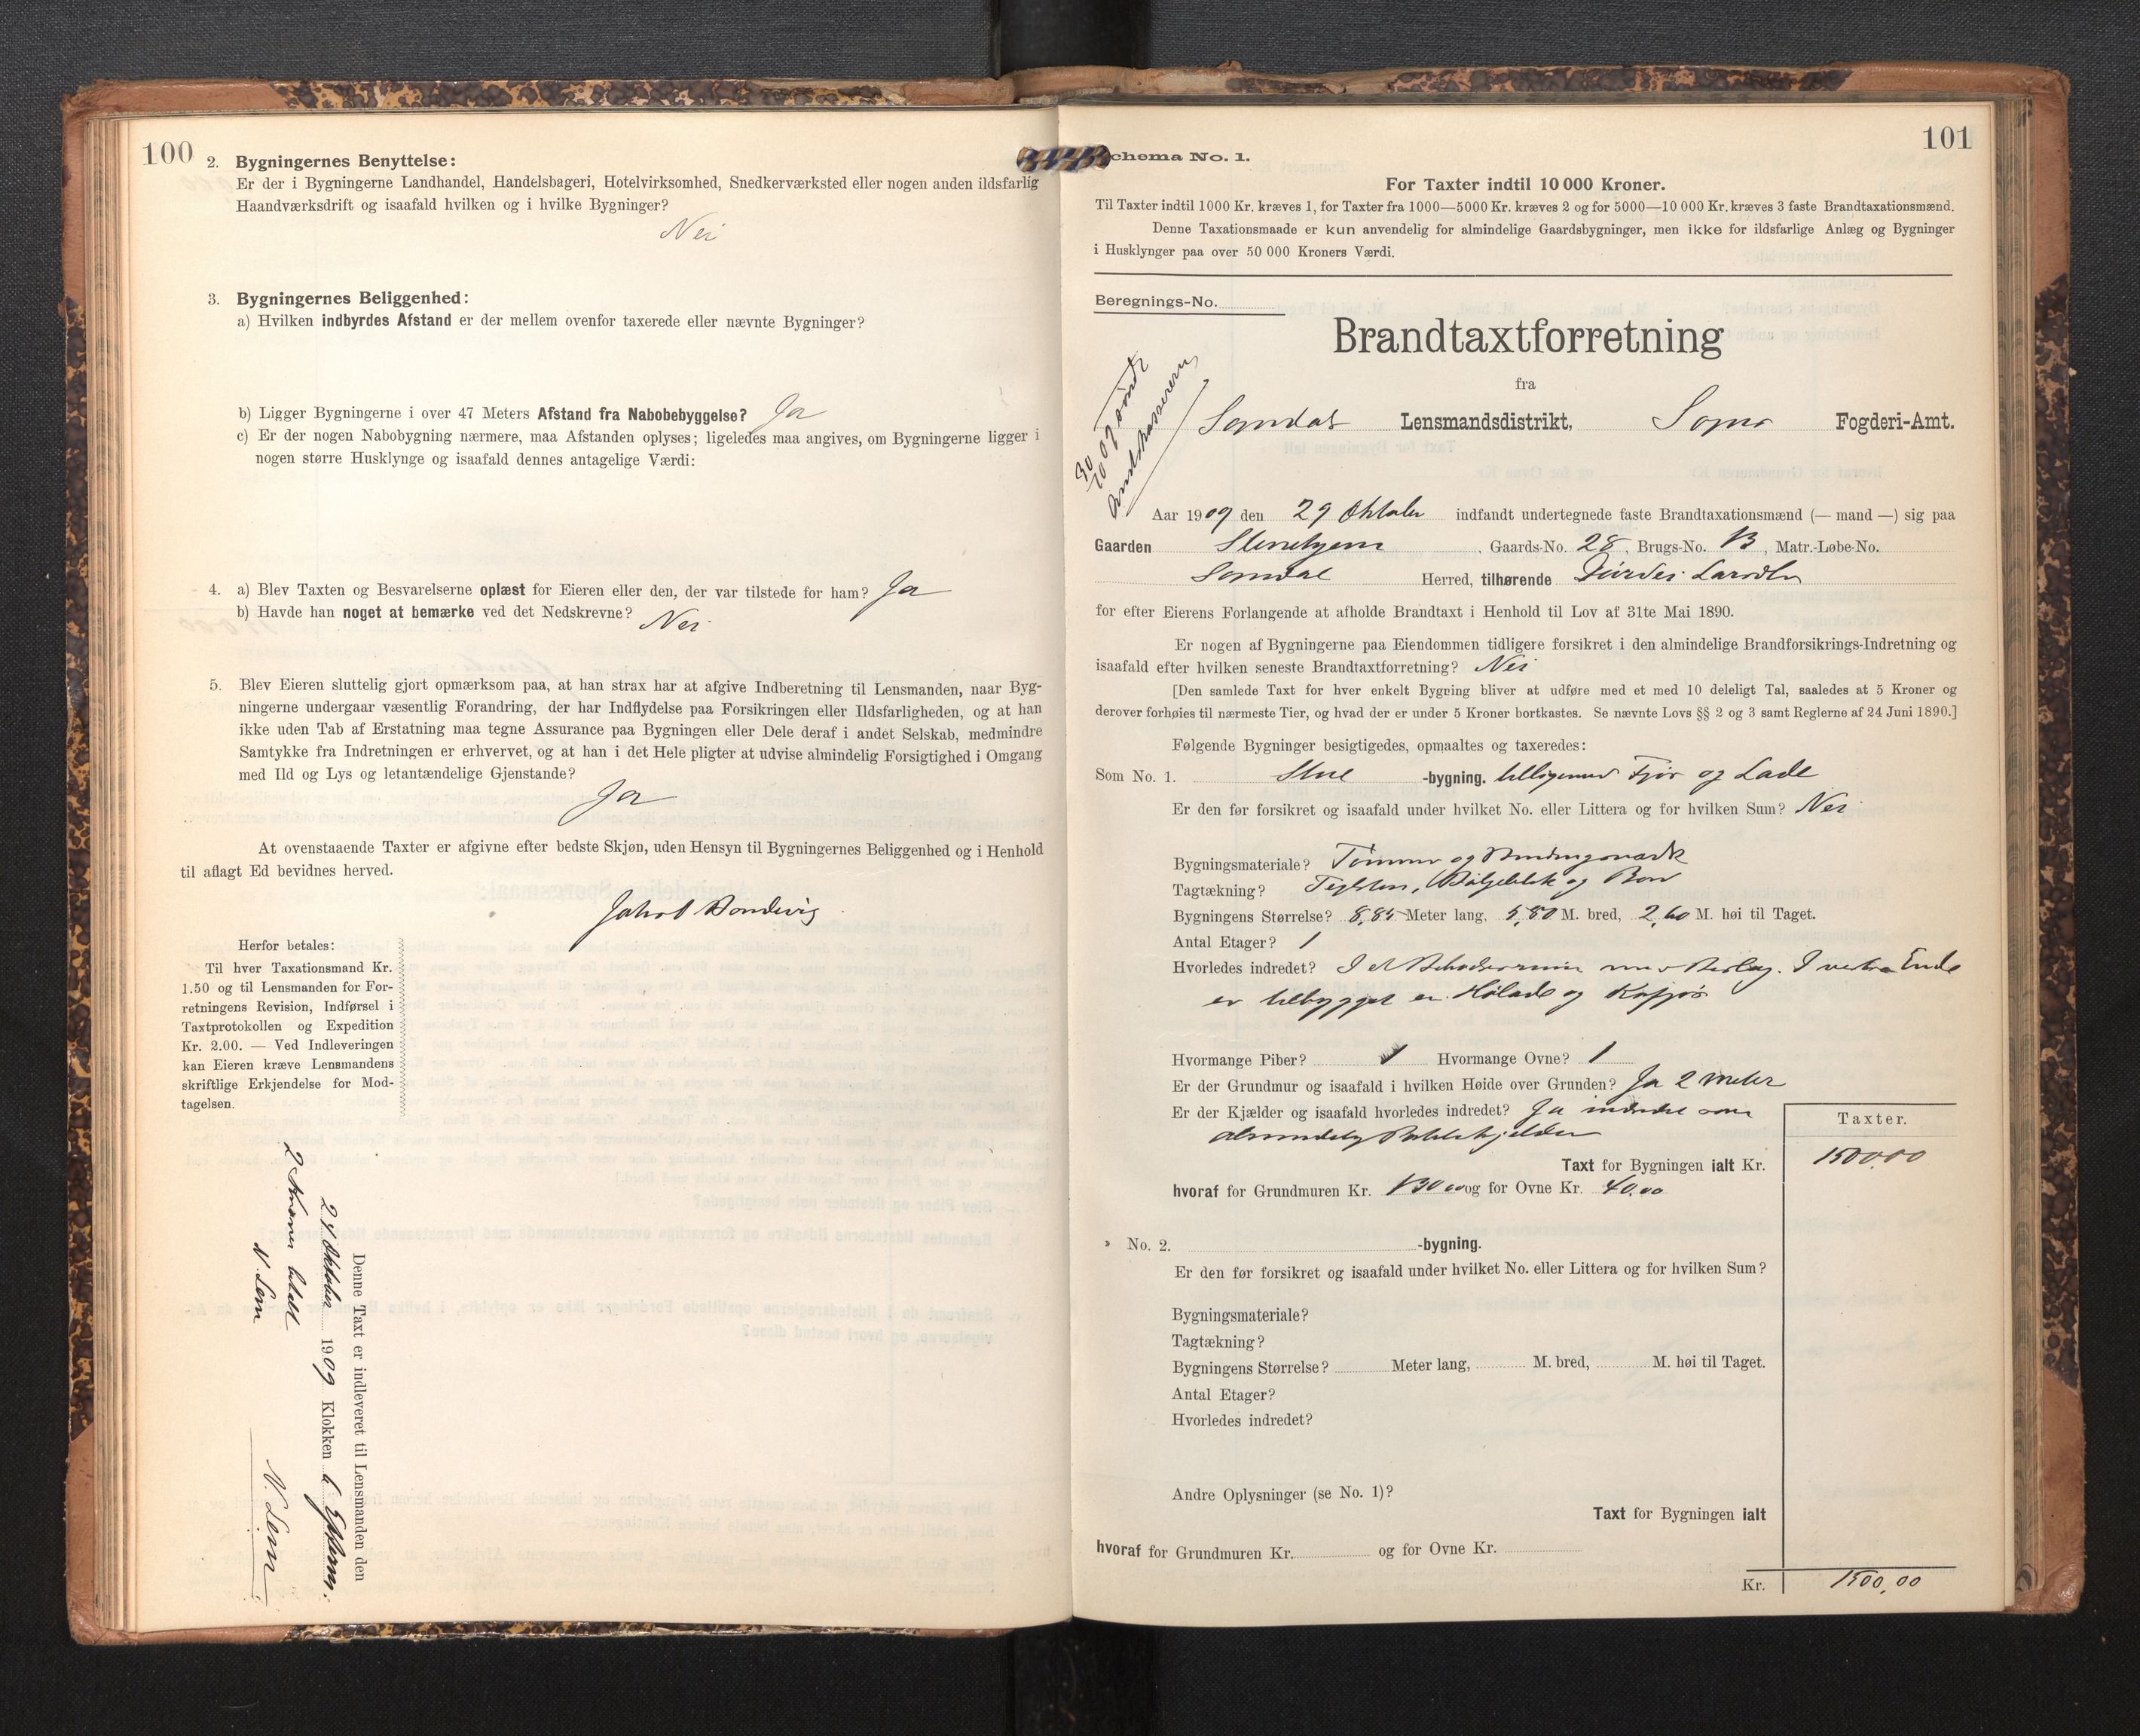 100
2. Bygningernes Benyttelse:
Er der i Bygningerne Landhandel, Handelsbageri, Hotelvirksomhed, Snedkerværksted eller nogen anden ildsfarlig
Haandværksdrift og isaafald hvilken og i hvilke Bygninger?
Nei
3. Bygningernes Beliggenhed:
a) Hvilken indbyrdes Afstand er der mellem ovenfor taxerede eller nævnte Bygninger?
b) Ligger Bygningerne i over 47 Meters Afstand fra Nabobebyggelse? Ja
c) Er der nogen Nabobygning nærmere, maa Afstanden oplyses; ligeledes maa angives, om Bygningerne ligger i
nogen større Husklynge og isaafald dennes antagelige Værdi:
4. a) Blev Taxten og Besvarelserne oplæst for Eieren eller den, der var tilstede for ham? Ja
b) Havde han noget at bemærke ved det Nedskrevne? Nei
5. Blev Eieren sluttelig gjort opmærksom paa, at han strax har at afgive Indberetning til Lensmanden, naar Byg-
ningerne undergaar væsentlig Forandring, der har Indflydelse paa Forsikringen eller Ildsfarligheden, og at han
ikke uden Tab af Erstatning maa tegne Assurance paa Bygningen eller Dele deraf i andet Selskab, medmindre
Samtykke fra Indretningen er erhvervet, og at han i det Hele pligter at udvise almindelig Forsigtighed i Omgang
med Ild og Lys og letantændelige Gjenstande?
Ja
At ovenstaaende Taxter er afgivne efter bedste Skjøn, uden Hensyn til Bygningernes Beliggenhed og i Henhold
til aflagt Ed bevidnes herved.
Jakob
Herfor betales:
Til hver Taxationsmand Kr.
1.50 og til Lensmanden for For-
retningens Revision, Indførsel i
Taxtprotokollen og Expedition
Kr. 2.00. — Ved Indleveringen
kan Eieren kræve Lensmandens
skriftlige Erkjendelse for Mod-
tagelsen.
Denne Taxt er indleveret til Lensmanden den
29 Oktober 1909 Klokken 6 Efterm.
2 Kroner betalt
N. Lem
N. Lem
101
chema No. 1.
For Taxter indtil 10 000 Kroner.
Til Taxter indtil 1000 Kr. kræves 1, for Taxter fra 1000—5000 Kr. kræves 2 og for 5000—10 000 Kr. kræves 3 faste Brandtaxationsmænd.
Denne Taxationsmaade er kun anvendelig for almindelige Gaardsbygninger, men ikke for ildsfarlige Anlæg og Bygninger
i Husklynger paa over 50 000 Kroners Værdi.
Beregnings-No.
Brandtaxtforretning
fra
30/10 09 sendt
Amtskassereren
Sogndal Lensmandsdistrikt, Sogns Fogderi-Amt.
Aar 1909 den 29 Oktober indfandt undertegnede faste Brandtaxationsmænd (— mand —) sig paa
Gaarden Gaards-No. 28, Brugs-No. Matr.-Løbe-No.
Sogndal Herred, tilhørende
for efter Eierens Forlangende at afholde Brandtaxt i Henhold til Lov af 31te Mai 1890.
Er nogen af Bygningerne paa Eiendommen tidligere forsikret i den almindelige Brandforsikrings-Indretning og
isaafald efter hvilken seneste Brandtaxtforretning? Nei
[Den samlede Taxt for hver enkelt Bygning bliver at udføre med et med 10 deleligt Tal, saaledes at 5 Kroner og
derover forhøies til nærmeste Tier, og hvad der er under 5 Kroner bortkastes. Se nævnte Lovs §§ 2 og 3 samt Reglerne af 24 Juni 1890.]
Følgende Bygninger besigtigedes, opmaaltes og taxeredes:
Som No. 1. Stue -bygning. tilligemed Fjøs og Lade
Er den før forsikret og isaafald under hvilket No. eller Littera og for hvilken Sum? Nei
Bygningsmateriale? Tømmer og Bindingsværk
Tagtækning? Teglsten, Bølgeblik og Bord
Bygningens Størrelse? 8,85 Meter lang, 5,80 M. bred, 2,60 M. høi til Taget.
Antal Etager? 1
Hvorledes indredet? I et Beboelsesrum I vestre Ende
er tilbygget en Hølade og Kofjøs
Hvormange Piber? 1 Hvormange Ovne? 1
Er der Grundmur og isaafald i hvilken Høide over Grunden? Ja 2 meter
Er der Kjælder og isaafald hvorledes indredet? Ja indredet som
almindelig Potetkjelder
Taxter.
Taxt for Bygningen ialt Kr. 1500,00
hvoraf for Grundmuren Kr. 130,00 og for Ovne Kr. 40,00
No. 2. -bygning.
Er den før forsikret og isaafald under hvilket No. eller Littera og for hvilken Sum?
Bygningsmateriale?
Tagtækning?
Bygningens Størrelse? Meter lang, M. bred, M. høi til Taget.
Antal Etager?
Hvorledes indredet?
Andre Oplysninger (se No. 1)?
Taxt for Bygningen ialt
hvoraf for Grundmuren Kr. og for Ovne Kr.
Kr. 1500,00